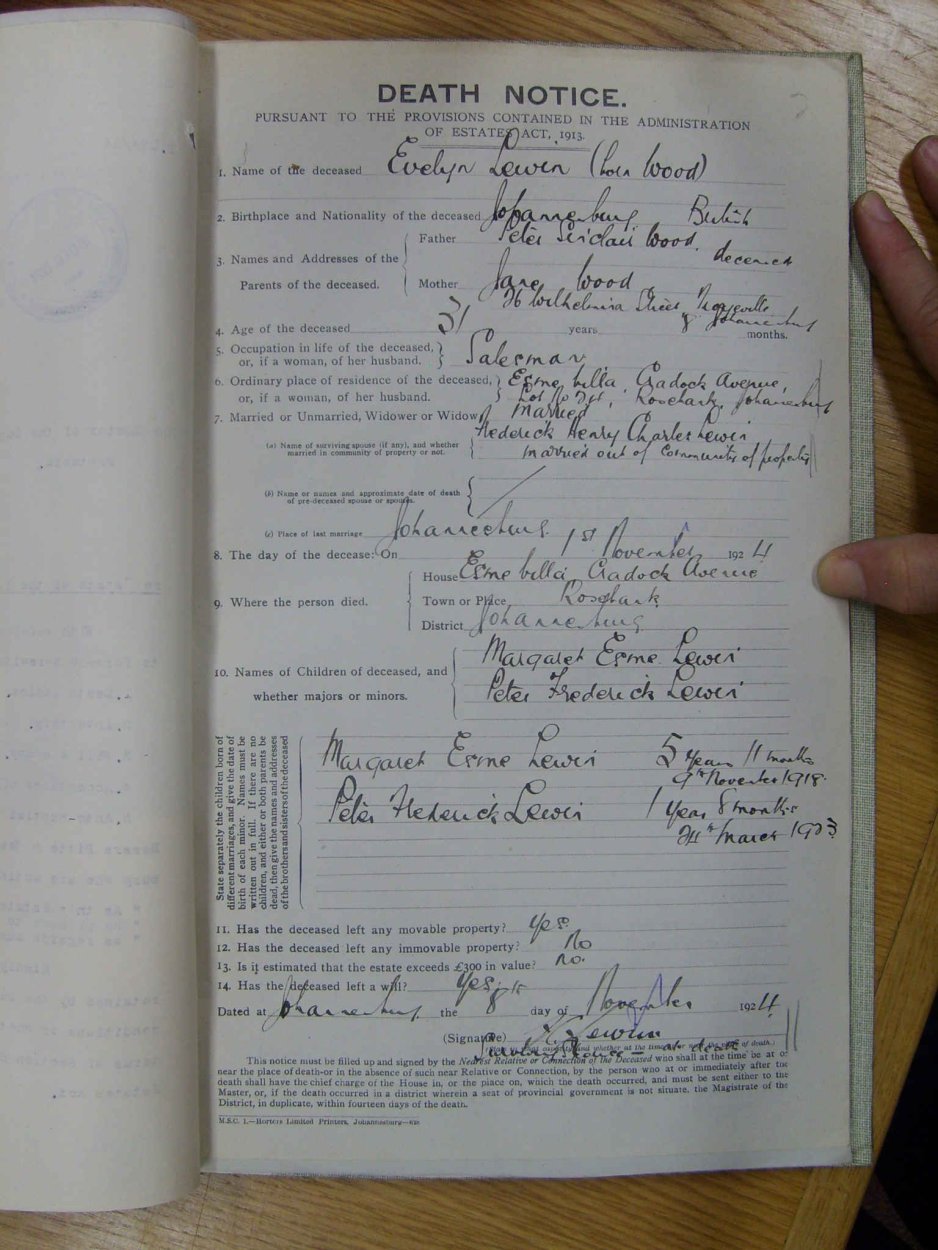 DEATH NOTICE.
PURSUANT TO THE PROVISIONS CONTAINED IN THE ADMINISTRATION
OF ESTATES ACT, 1913.
1. Name of the deceased Evelyn Lewin (born Wood)
2. Birthplace and Nationality of the deceased Johannesburg British
3. Names and Addresses of the Parents of the deceased.
Father Peter Sinclair Wood, deceased
Mother Jane Wood
26 Wilhelmina Street Troyeville
Johannesburg
4. Age of the deceased 31 years 8 months.
5. Occupation in life of the deceased, or, if a woman, of her husband. Salesman
6. Ordinary place of residence of the deceased, Esme Villa, Cradock Avenue,
or, if a woman, of her husband. Lot No Rosebank, Johannesburg
7. Married or Unmarried, Widower or Widow Married
(a) Name of surviving spouse (if any), and whether Frederick Henry Charles Lewin
married in community of property or not. married out of community of property
(b) Name or names and approximate date of death
of pre-deceased spouse or spouses.
(c) Place of last marriage Johannesburg.
8. The day of the decease: On 1st November 1924
9. Where the person died.
House Esme Villa Cradock Avenue
Town or Place Rosebank
District Johannesburg
10. Names of Children of deceased, and Margaret Esme Lewin
whether majors or minors. Peter Frederick Lewin
State separately the children born of
different marriages, and give the date of
birth of each minor. Names must be
written out in full. If there are no
children, and either or both parents be
dead, then give the names and addresses
of the brothers and sisters of the deceased
Margaret Esme Lewin 5 Years 11 months
9th November 1918.
Peter Frederick Lewin 1 Year 8 months
March 1923
11. Has the deceased left any movable property? Yes
12. Has the deceased left any immovable property? No
13. Is it estimated that the estate exceeds £300 in value? no.
14. Has the deceased left a will? Yes.
Dated at Johannesburg the 8th day of November 1924
(Signature) Lewin
Surviving Spouse - at death
This notice must be filled up and signed by the Nearest Relative or Connection of the Deceased who shall at the time be at or
near the place of death-or in the absence of such near Relative or Connection, by the person who at or immediately after the
death shall have the chief charge of the House in, or the place on, which the death occurred, and must be sent either to the
Master, or, if the death occurred in a district wherein a seat of provincial government is not situate, the Magistrate of the
District, in duplicate, within fourteen days of the death.
M.S.C. 1.—Hortors Limited Printers, Johannesburg